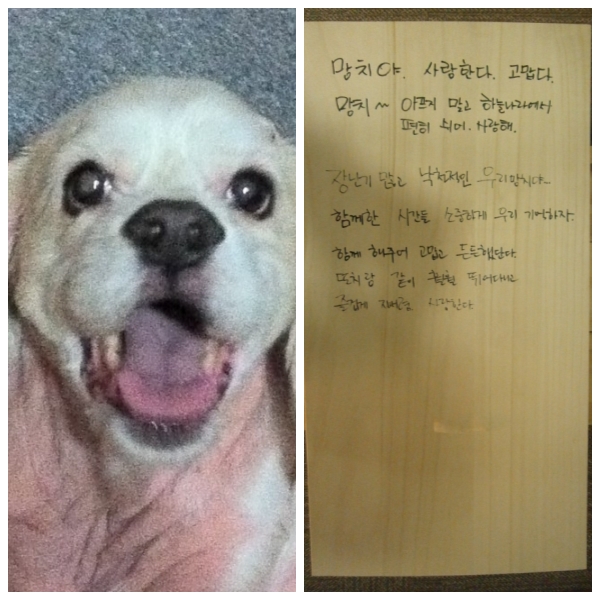 망치야. 사랑한다. 고맙다.
망치~ 아프지 말고 하늘나라에서
편히 쉬어. 사랑해.
장난기 많고 낙천적인 우리망치야~
함께한 시간들 소중하게 우리 기억하자.
함께 해주어 고맙고 든든했단다.
또치랑 같이 훨훨 뛰어다니고
즐겁게 지내렴 사랑한다